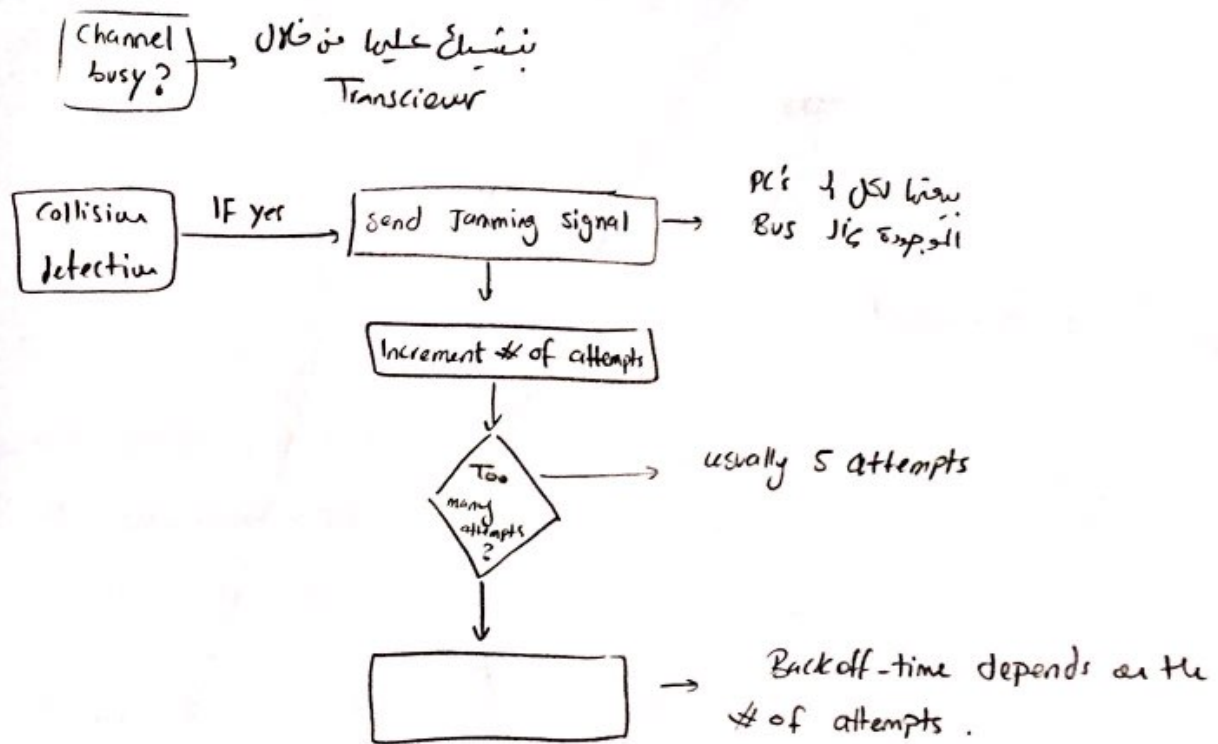 Channel
busy?
بنشيك عليها من خلال
Transciever
Collision
detection
IF yes
Send Jamming signal
بيعتها لكل ال PC's
الموجودة عال Bus
Increment # of attempts
Too
many
attempts
?
usually 5 attempts
Backoff-time depends on the
# of attempts.